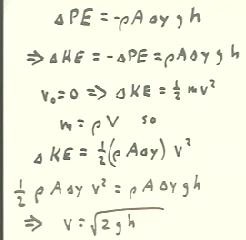 ΔPE = -ρAΔygh
⇒ ΔKE = -ΔPE = ρAΔygh
v₀=0 ⇒ ΔKE = ½mv²
m = ρV so
ΔKE = ½(ρAΔy)v²
½ρAΔyv² = ρAΔygh
⇒ v = √2gh